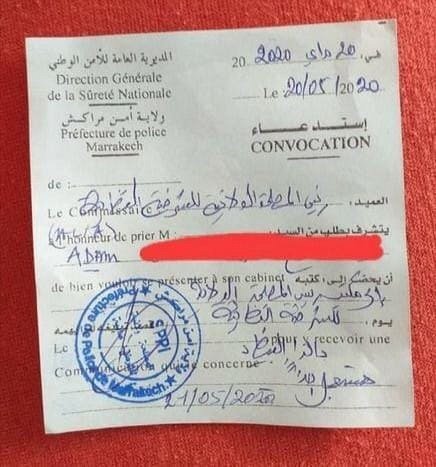 المديرية العامة للأمن الوطني
Direction Générale
de la Sûreté Nationale
ولاية أمن مراكش
Préfecture de police
Marrakech
في، 20 ماي 2020
Le : 20/05/2020
إستدعاء
CONVOCATION
de :
العميد:
Le Commissaire رئيس المصلحة الولائية للشرطة القضائية
يتشرف بطلب من السيد:
a l'honneur de prier M :
ADAM
أن يحضر إلى مكتبه
de bien vouloir se présenter à son cabinet
للشرطة القضائية
يوم
Le
pour recevoir une
Communication qui le concerne
21/05/2020
Préfecture de Police de Marrakech